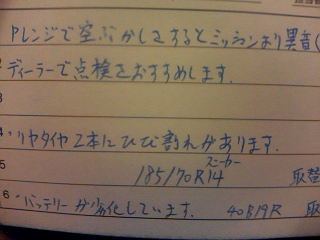 Pレンジで空ぶかしをするとミッションより異音(
2 ディーラーで点検をおすすめします.
3
4 ・リヤタイヤ2本にひび割れがあります.
スニーカー
5 185/70R14 取替
6 ・バッテリーが劣化しています. 40B19R 取